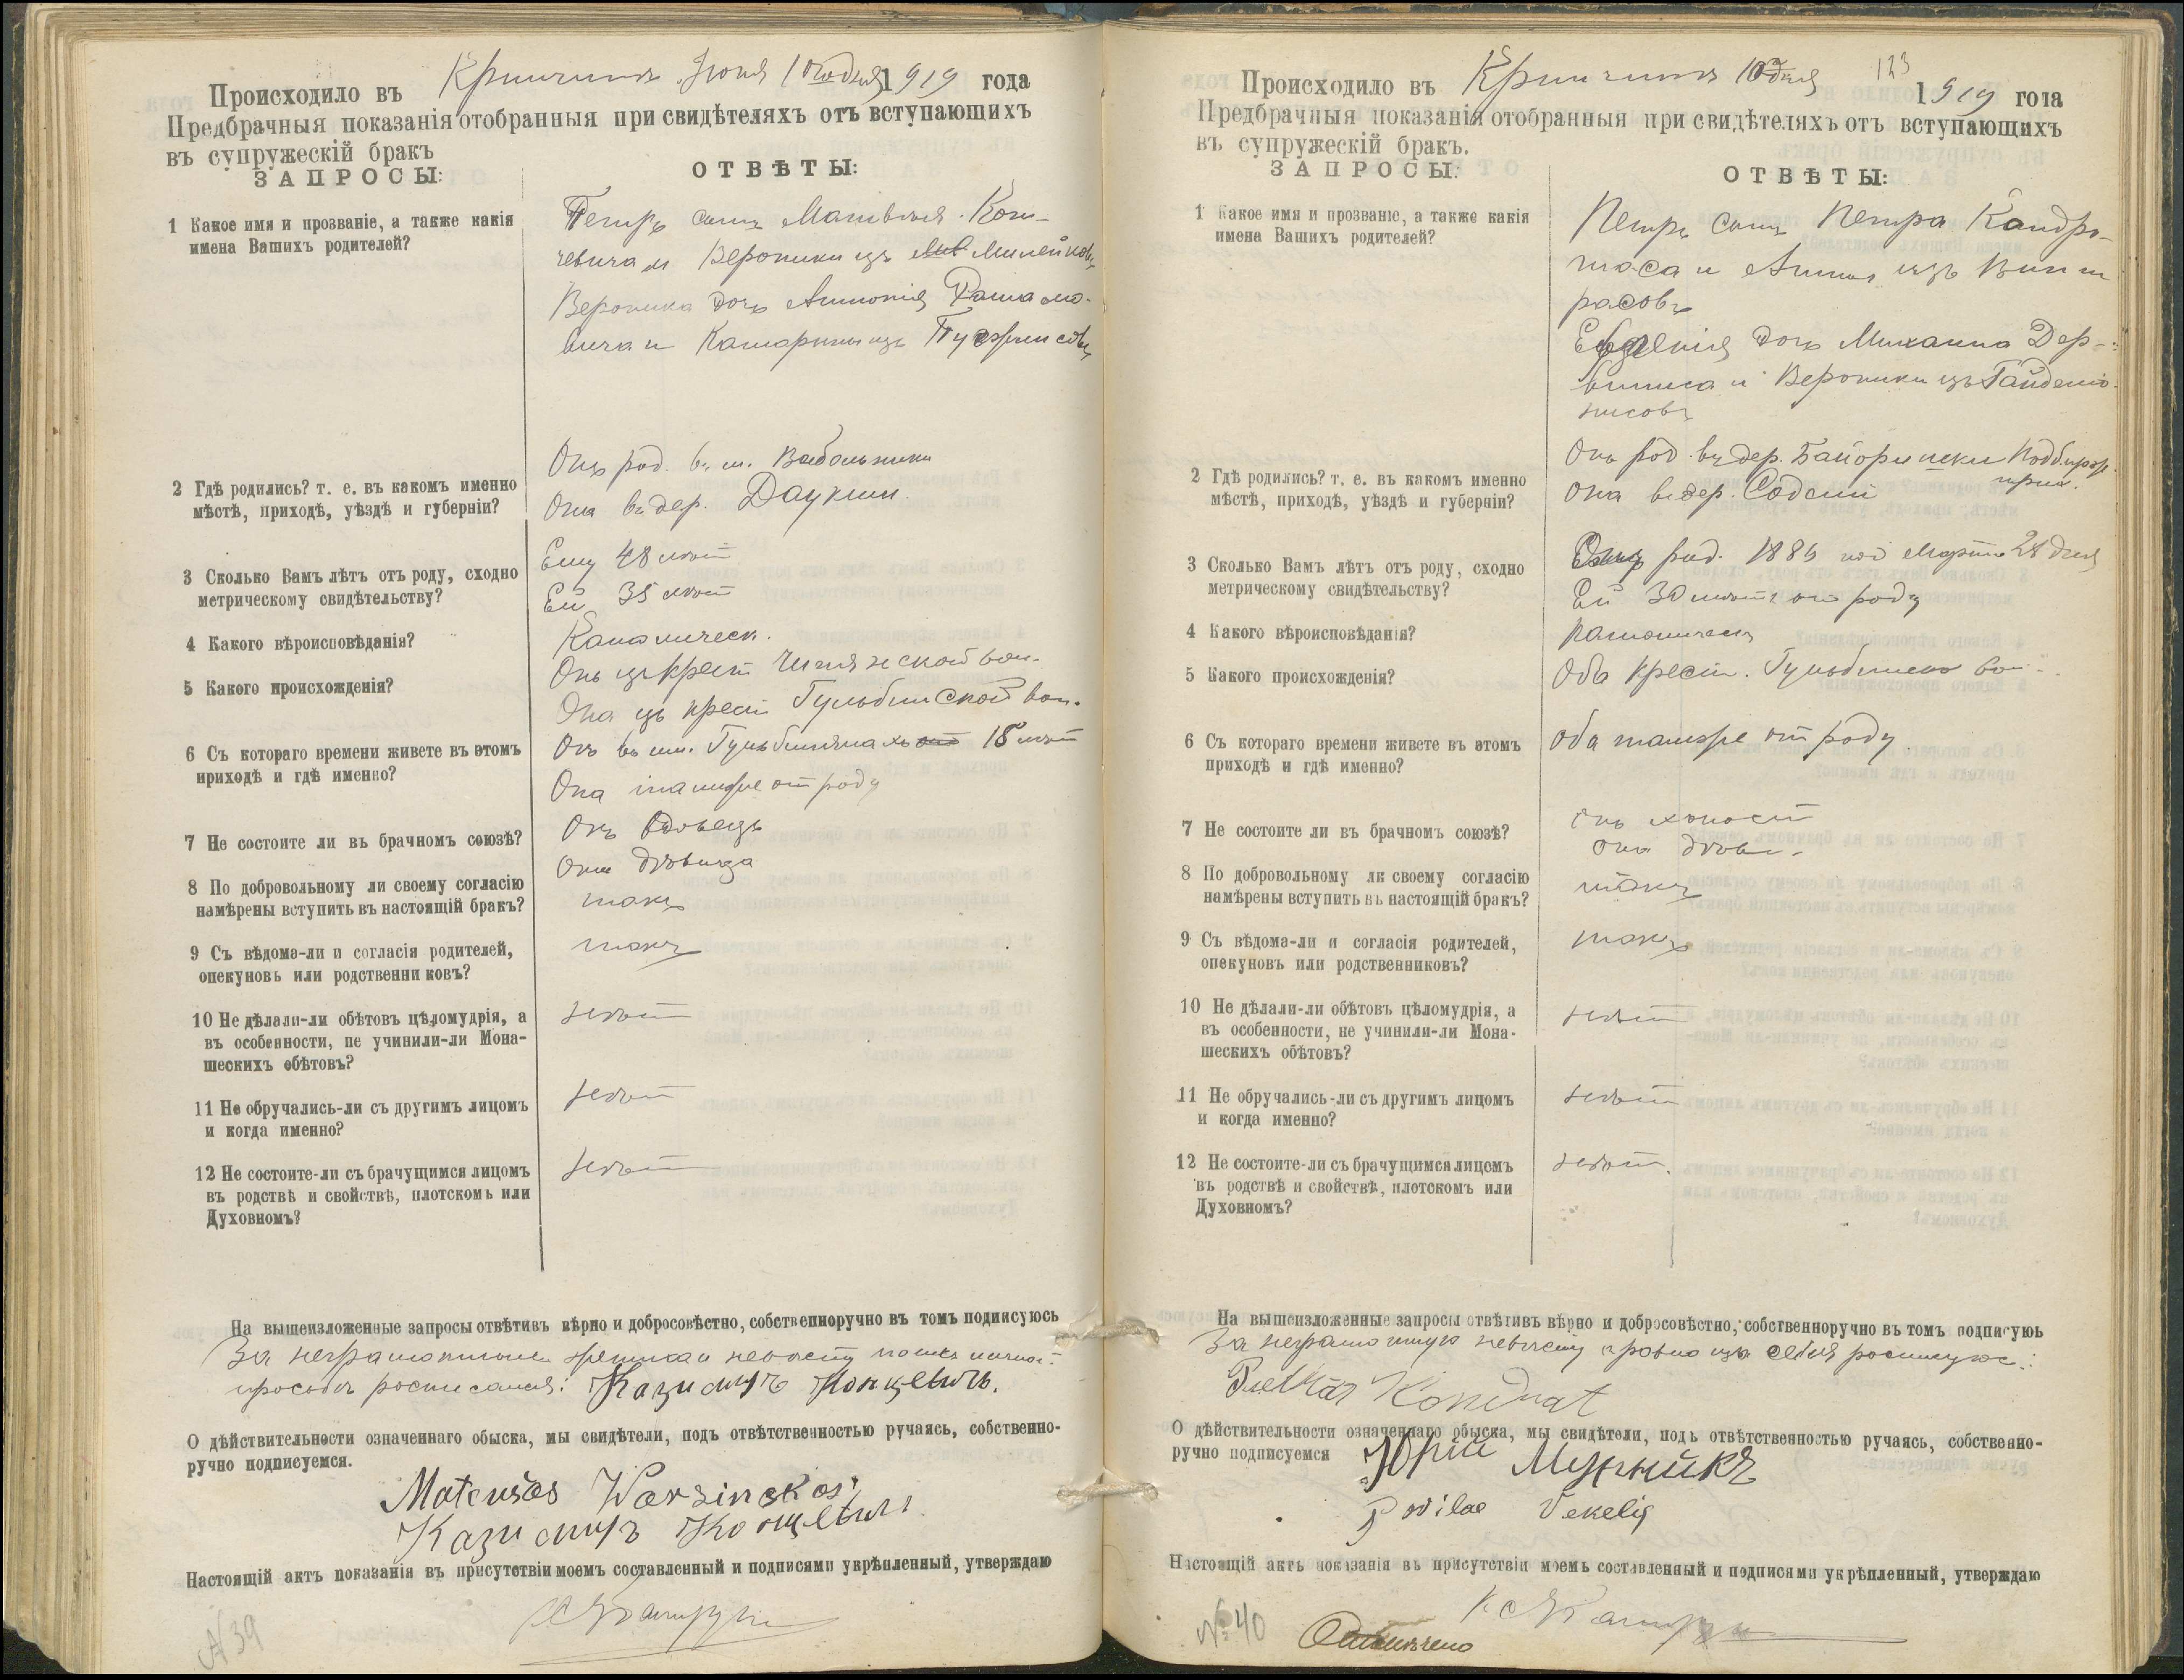 Происходило въ Кринчинъ Іюня 10 дня 1919 года
Предбрачныя показанія отобранныя при свидѣтеляхъ отъ вступающихъ
въ супружескій бракъ
ЗАПРОСЫ:
ОТВѢТЫ:
1 Какое имя и прозваніе, а также какія
имена Вашихъ родителей?
Петръ сынъ Матвѣя Кон-
чевича и Вероники изъ
Вероника дочь Антонія
вича и Катарины изъ
2 Гдѣ родились? т. е. въ какомъ именно
мѣстѣ, приходѣ, уѣздѣ и губерніи?
Онъ род. въ м. Вабольники
Она въ дер. Даукни
3 Сколько Вамъ лѣтъ отъ роду, сходно
метрическому свидѣтельству?
Ему 48 лѣт
Ей 35 лѣт
4 Какого вѣроисповѣданія?
Католическ.
5 Какого происхожденія?
Онъ изъ крест. вол.
Она изъ крест Гульбинской вол.
6 Съ котораго времени живете въ этомъ
приходѣ и гдѣ именно?
Онъ въ им. 18 лѣт
Она также от роду
7 Не состоите ли въ брачномъ союзѣ?
Онъ вдовецъ
Она дѣвица
8 По добровольному ли своему согласію
намѣрены вступить въ настоящій бракъ?
такъ
9 Съ вѣдома-ли и согласія родителей,
опекуновъ или родственни ковъ?
такъ
10 Не дѣлали-ли обѣтовъ цѣломудрія, а
въ особенности, не учинили-ли Мона-
шескихъ обѣтовъ?
нѣт
11 Не обручались-ли съ другимъ лицомъ
и когда именно?
нѣт
12 Не состоите-ли съ брачущимся лицомъ
въ родствѣ и свойствѣ, плотскомъ или
Духовномъ?
нѣт
На вышеизложенные запросы отвѣтивъ вѣрно и добросовѣстно, собственноручно въ томъ подписуюсь
За неграмотныхъ жениха и невѣсту по ихъ личной
просьбѣ росписался: Казимиръ Концевичъ.
О дѣйствительности означеннаго обыска, мы свидѣтели, подъ отвѣтственностью ручаясь, собственно-
ручно подписуемся.
Mateušas Warzinskas
Казимиръ Концевичъ
Настоящій актъ показанія въ присутствіи моемъ составленный и подписями укрѣпленный, утверждаю
№ 39
123
Происходило въ Кринчинъ 10 дня 1919 года
Предбрачныя показанія отобранныя при свидѣтеляхъ отъ вступающихъ
въ супружескій бракъ.
ЗАПРОСЫ:
ОТВѢТЫ:
1 Какое имя и прозваніе, а также какія
имена Вашихъ родителей?
Петръ сынъ Петра Кандро-
таса и Анны изъ Винт
расовъ
Евгенія дочь Михаила Дер-
виниса и Вероники изъ
нисовъ
2 Гдѣ родились? т. е. въ какомъ именно
мѣстѣ, приходѣ, уѣздѣ и губерніи?
Онъ род. въ дер. Байоришки Подбирж.
прих.
Она въ дер. Содели
3 Сколько Вамъ лѣтъ отъ роду, сходно
метрическому свидѣтельству?
род. 1884 год Марта 28 дня
Ей 30 лѣтъ от роду
4 Какого вѣроисповѣданія?
Католическ
5 Какого происхожденія?
Оба крест. Гульбинско вол.
6 Съ котораго времени живете въ этомъ
приходѣ и гдѣ именно?
оба также от роду
7 Не состоите ли въ брачномъ союзѣ?
онъ холост
она дѣви.
8 По добровольному ли своему согласію
намѣрены вступить въ настоящій бракъ?
такъ
9 Съ вѣдома-ли и согласія родителей,
опекуновъ или родственниковъ?
такъ
10 Не дѣлали-ли обѣтовъ цѣломудрія, а
въ особенности, не учинили-ли Мона-
шескихъ обѣтовъ?
нѣт
11 Не обручались-ли съ другимъ лицомъ
и когда именно?
нѣт
12 Не состоите-ли съ брачущимся лицомъ
въ родствѣ и свойствѣ, плотскомъ или
Духовномъ?
нѣт.
На вышеизложенные запросы отвѣтивъ вѣрно и добросовѣстно, собственноручно въ томъ подписуюь
За неграмотную невѣсту и ровно изъ себя росписуюс:
Kondrat
О дѣйствительности означеннаго обыска, мы свидѣтели, подъ отвѣтственностью ручаясь, собственно-
ручно подписуемся Юрій
Povilas Vekelis
Настоящій актъ показанія въ присутствіи моемъ составленный и подписями укрѣпленный, утверждаю
№ 40